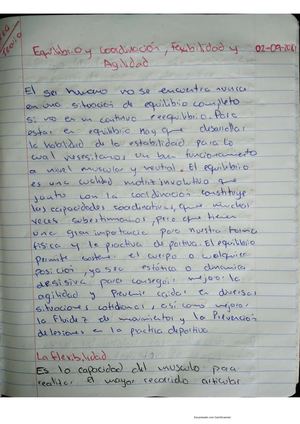 Equilibrio y coordinación, flexibilidad y 02-09-2021
Agilidad
El ser humano no se encuentra nunca
en una situación de equilibrio completo
si no en un continuo reequilibrio. Para
estar en equilibrio hay que desarrollar
la habilidad de la estabilidad para lo
cual un buen funcionamiento
a nivel muscular y neutral. El equilibrio
es una cualidad motriz involutiva que
junto con la coordinación constituye
las capacidades coordinativas, que muchas
veces subestimamos, pero que tienen
una gran importancia para nuestra forma
física y la practica deportiva. El equilibrio
permite sostener el cuerpo o cualquier
posición ya sea estática o dinamica
desisiva para conseguir mejorar la
agilidad y Prevenir caidas en diversas
situaciones cotidianas, así como mejorar
la Fluidez de movimientos y la Prevención
de lesiones en la practica deportiva.
La flexibilidad
Es la capacidad del musculo para
realizar el mayor recorrido articular
Escaneado con CamScanner